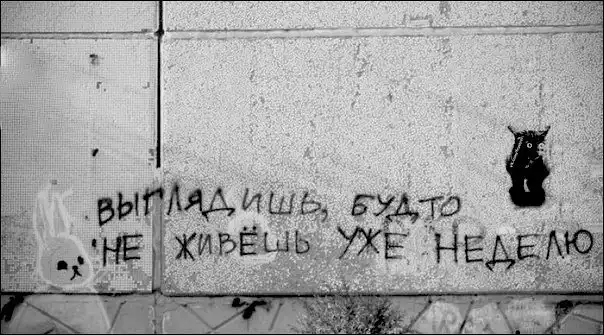 ВЫГЛЯДИШЬ, БУДТО
НЕ ЖИВЁШЬ УЖЕ НЕДЕЛЮ